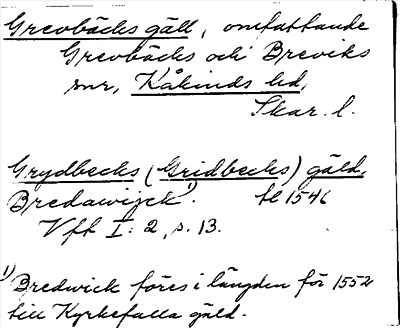 Grevbäcks gäll, omfattande
Grevbäcks och Breviks
snr, Kåkinds hd,
Skar. l.
Grydbecks (Gridbecks) gäld,
Bredawijck¹). tl 1546
Vft I: 2, s. 13.
¹) Bredwick föres i längden för 1552
till Kyrkefalla gäld.